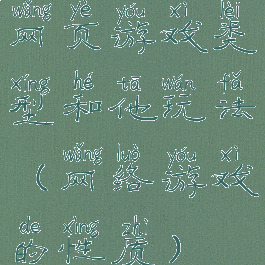 wǎng yè yóu xì lèi
网页游戏类
xíng hé tā wán fǎ
型和他玩法
wǎng luò yóu xì
(网络游戏
de xìng zhì
的性质)